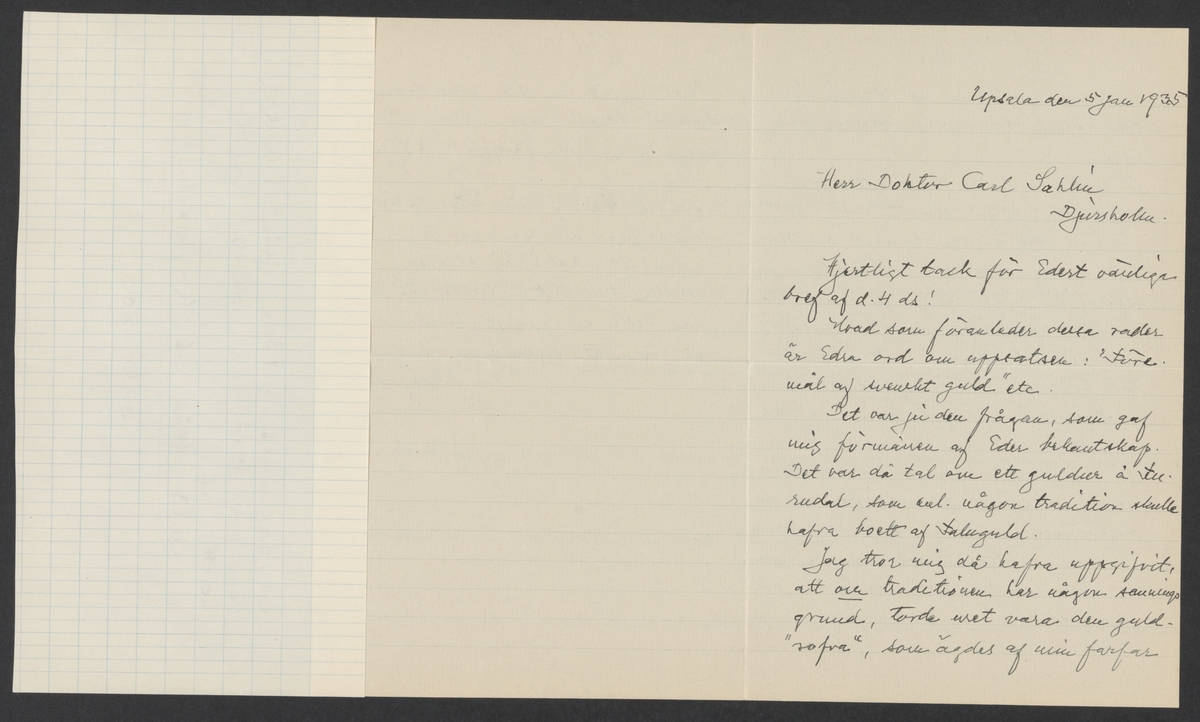 Upsala den 5 jan 1935
Herr Doktor Carl Sahlin
Djursholm.
Hjertligt tack för Edert vänliga
bref af d. 4 ds!
Hvad som föranleder dessa rader
är Edra ord om uppsatsen: "Före-
mål af svenskt guld" etc.
Det var ju den frågan, som gaf
mig förmånen af Eder bekantskap.
Det var då tal om ett guldur å Fu-
rudal, som enl. någon tradition skulle
hafva boett af Faluguld.
Jag tror mig då hafva uppgifvit,
att om traditionen har någon sannings
grund, torde uret vara den guld-
"rofva", som ägdes af min farfar